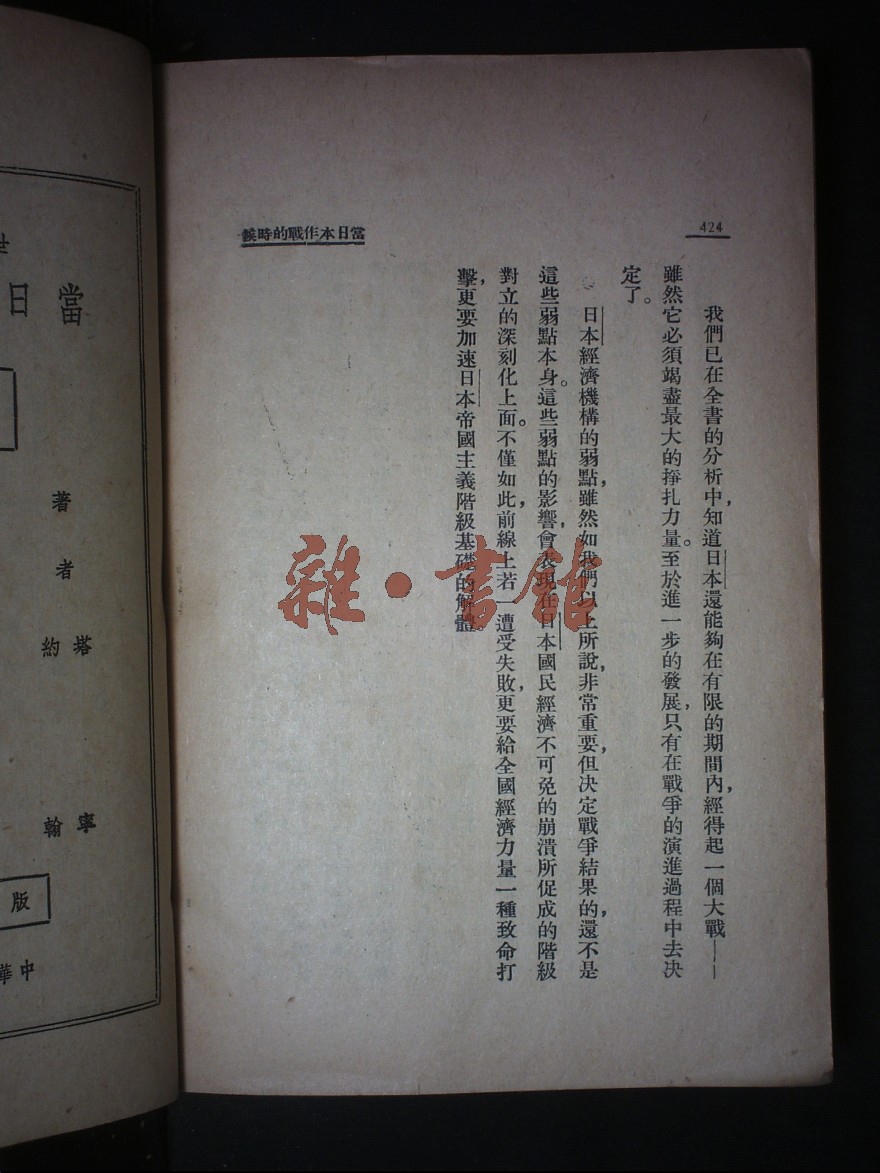 424
當日本作戰的時候
我們已在全書的分析中，知道日本還能夠在有限的期間內，經得起一個大戰——
雖然它必須竭盡最大的掙扎力量。至於進一步的發展，只有在戰爭的演進過程中去決
定了。
日本經濟機構的弱點，雖然如我們以上所說，非常重要，但決定戰爭結果的，還不是
這些弱點本身。這些弱點的影響，會表現在日本國民經濟不可免的崩潰所促成的階級
對立的深刻化上面。不僅如此，前線上若一遭受失敗，更要給全國經濟力量一種致命打
擊，更要加速日本帝國主義階級基礎的解體。
雜·書館
當日
著者
塔
約
寧
翰
版
中華